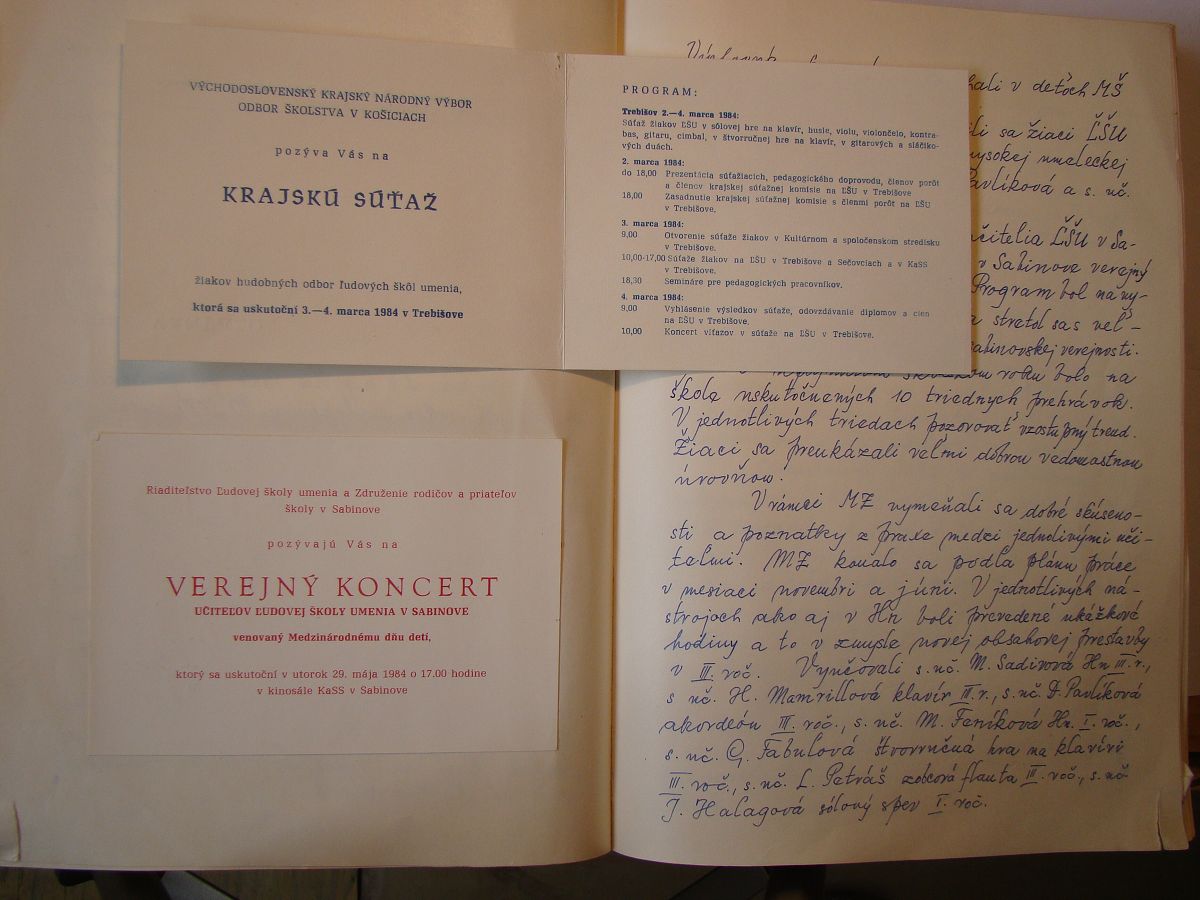 VÝCHODOSLOVENSKÝ KRAJSKÝ NÁRODNÝ VÝBOR
ODBOR ŠKOLSTVA V KOŠICIACH
pozýva Vás na
KRAJSKÚ SÚŤAŽ
žiakov hudobných odbor ľudových škôl umenia,
ktorá sa uskutoční 3.—4. marca 1984 v Trebišove
PROGRAM:
Trebišov 2.—4. marca 1984:
Súťaž žiakov ĽŠU v sólovej hre na klavír, husle, violu, violončelo, kontra-
bas, gitaru, cimbal, v štvorručnej hre na klavír, v gitarových a sláčiko-
vých duách.
2. marca 1984:
do 18,00 Prezentácia súťažiacich, pedagogického doprovodu, členov porôt
a členov krajskej súťažnej komisie na ĽŠU v Trebišove
18,00 Zasadnutie krajskej súťažnej komisie s členmi porôt na ĽŠU
v Trebišove.
3. marca 1984:
9,00 Otvorenie súťaže žiakov v Kultúrnom a spoločenskom stredisku
v Trebišove.
10,00-17,00 Súťaže žiakov na ĽŠU v Trebišove a Sečovciach a v KaSS
v Trebišove,
18,30 Semináre pre pedagogických pracovníkov.
4. marca 1984:
9,00 Vyhlásenie výsledkov súťaže, odovzdávanie diplomov a cien
na ĽŠU v Trebišove,
10,00 Koncert víťazov v súťaže na ĽŠU v Trebišove.
Riaditeľstvo Ľudovej školy umenia a Združenie rodičov a priateľov
školy v Sabinove
pozývajú Vás na
VEREJNÝ KONCERT
UČITEĽOV ĽUDOVEJ ŠKOLY UMENIA V SABINOVE
venovaný Medzinárodnému dňu detí,
ktorý sa uskutoční v utorok 29. mája 1984 o 17.00 hodine
v kinosále KaSS v Sabinove
v deťoch MŠ
sa žiaci ĽŠU
umeleckej
Pavlíková a s. uč.
ĽŠU v Sa-
v Sabinove verejný
Program bol na vy-
stretol sa s veľ-
verejnosti.
školskom roku bolo na
škole uskutočnených 10 triednych prehrávok.
V jednotlivých triedach pozorovať vzostupný trend.
Žiaci sa preukázali veľmi dobrou vedomostnou
úrovňou.
V rámci MZ vymeňali sa dobré skúseno-
sti a poznatky z praxe medzi jednotlivými uči-
teľmi. MZ konalo sa podľa plánu práce
v mesiaci novembri a júni. V jednotlivých ná-
strojoch ako aj v Hn boli prevedené ukážkové
hodiny a to v zmysle novej obsahovej prestavby
v III. roč. Vyučovali s. uč. M. Sadivová Hn III. r.,
s. uč. H. Mamrillová klavír III. r., s. uč. D. Pavlíková
akordeón III. roč., s. uč. M. Feníková Hn. I. roč.,
s. uč. G. Fabuľová štvorručná hra na klavíri
III. roč., s. uč. L. Petráš zobcová flauta III. roč., s. uč.
J. Haľagová sólový spev I. roč.